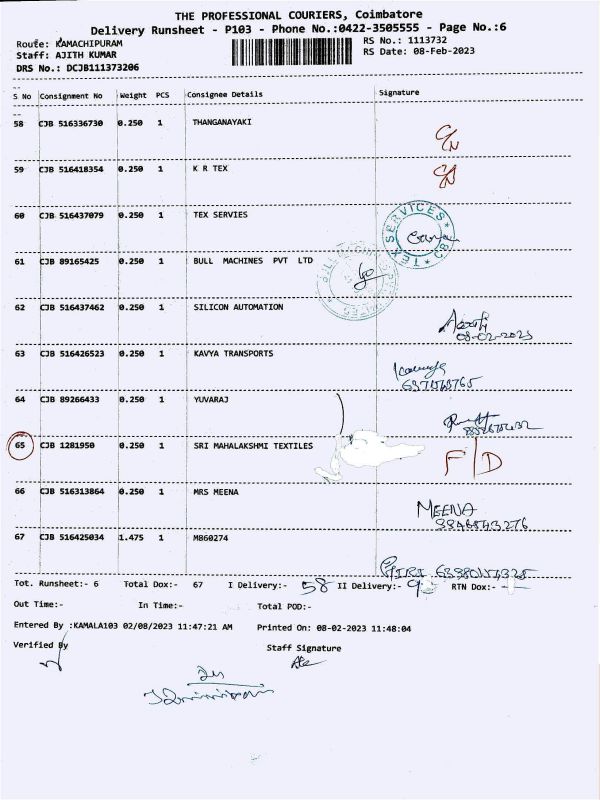 THE PROFESSIONAL COURIERS, Coimbatore
Delivery Runsheet - P103 - Phone No.:0422-3505555 - Page No.:6
Route: KAMACHIPURAM RS No.: 1113732
Staff: AJITH KUMAR RS Date: 08-Feb-2023
DRS No.: DCJB111373206
S No Consignment No Weight PCS Consignee Details Signature
58 CJB 516336730 0.250 1 THANGANAYAKI
59 CJB 516418354 0.250 1 K R TEX
60 CJB 516437079 0.250 1 TEX SERVIES
TEX SERVICES
61 CJB 89165425 0.250 1 BULL MACHINES PVT LTD
62 CJB 516437462 0.250 1 SILICON AUTOMATION
08-02-2023
63 CJB 516426523 0.250 1 KAVYA TRANSPORTS
64 CJB 89266433 0.250 1 YUVARAJ
65 CJB 1281950 0.250 1 SRI MAHALAKSHMI TEXTILES F/D
66 CJB 516313864 0.250 1 MRS MEENA MEENA
67 CJB 516425034 1.475 1 M860274
Tot. Runsheet:- 6 Total Dox:- 67 I Delivery:- 58 II Delivery:- RTN Dox:-
Out Time:- In Time:- Total POD:-
Entered By :KAMALA103 02/08/2023 11:47:21 AM Printed On: 08-02-2023 11:48:04
Verified By Staff Signature